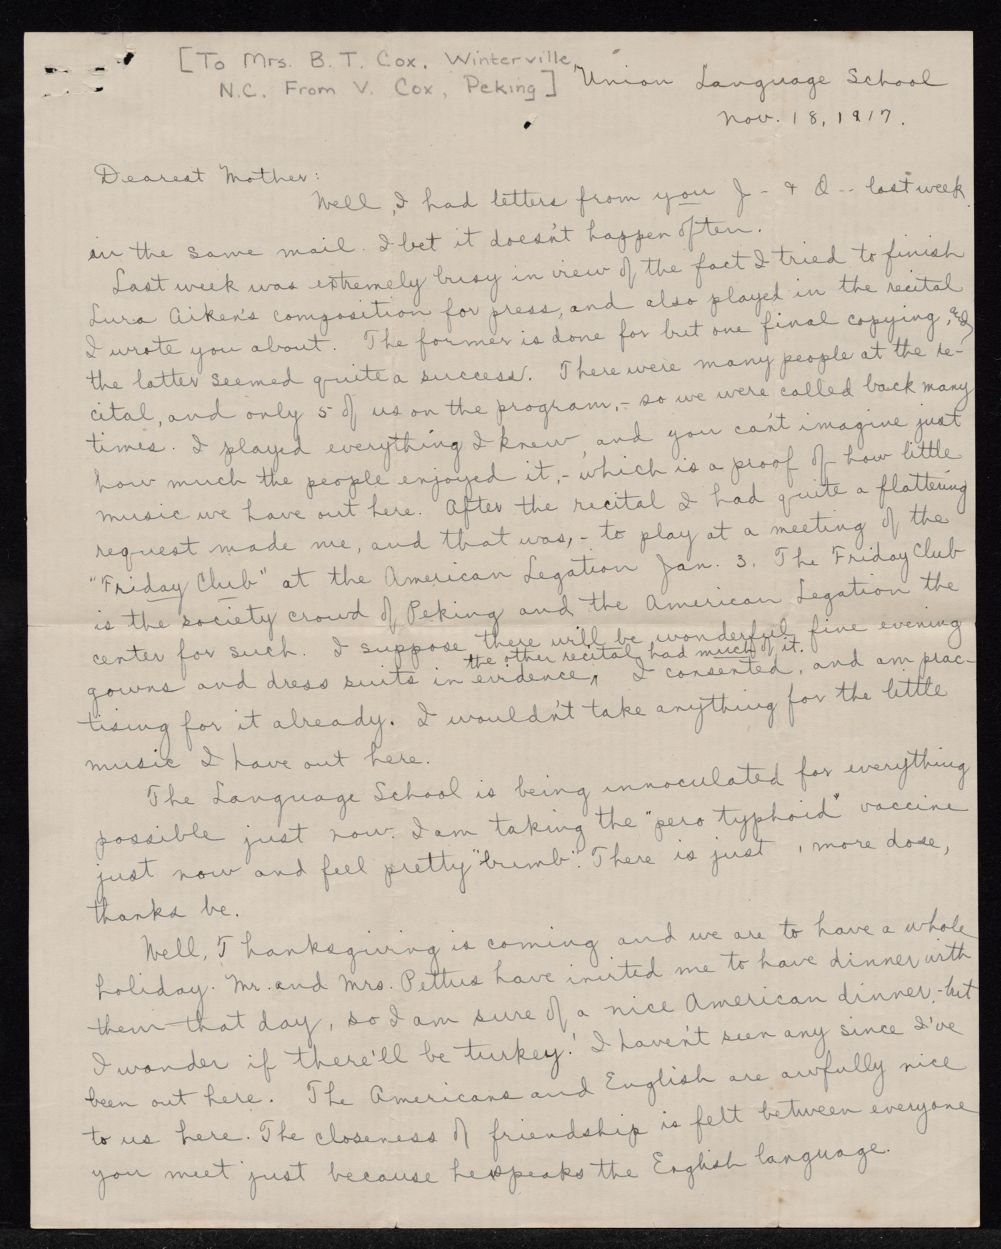 [To Mrs. B. T. Cox, Winterville,
N.C. From V. Cox, Peking]
Union Language School
Nov. 18, 1917.
Dearest Mother:
Well, I had letters from you J - & O -- last week
in the same mail. I bet it doesn't happen often.
Last week was extremely busy in view of the fact I tried to finish
Lura Aiken's composition for press, and also played in the recital
I wrote you about. The former is done for but one final copying, and
the latter seemed quite a success. There were many people at the re-
cital, and only 5 of us on the program,- so we were called back many
times. I played everything I knew, and you can't imagine just
how much the people enjoyed it,- which is a proof of how little
music we have out here. After the recital I had quite a flattering
request made me, and that was,- to play at a meeting of the
"Friday Club" at the American Legation Jan. 3. The Friday Club
is the society crowd of Peking and the American Legation the
center for such. I suppose there will be wonderful, fine evening
the other recital had much of it.
gowns and dress suits in evidence, I consented, and am prac-
tising for it already. I wouldn't take anything for the little
music I have out here.
The Language School is being innoculated for everything
possible just now. I am taking the "pero typhoid" vaccine
just now and feel pretty "bumb". There is just 1 more dose,
thanks be.
Well, Thanksgiving is coming and we are to have a whole
holiday. Mr. and Mrs. Pettus have invited me to have dinner with
them that day, so I am sure of a nice American dinner,- but
I wonder if there'll be turkey! I haven't seen any since I've
been out here. The Americans and English are awfully nice
to us here. The closeness of friendship is felt between everyone
you meet just because he speaks the English language.